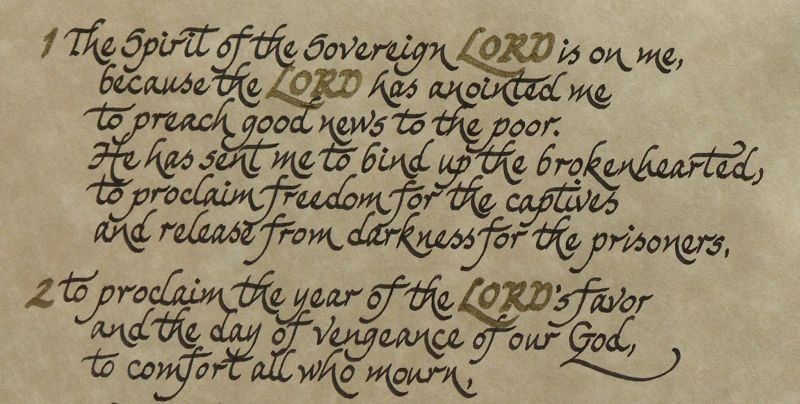 1 The Spirit of the Sovereign LORD is on me,
because the LORD has anointed me
to preach good news to the poor.
He has sent me to bind up the brokenhearted,
to proclaim freedom for the captives
and release from darkness for the prisoners,
2 to proclaim the year of the LORD's favor
and the day of vengeance of our God,
to comfort all who mourn,